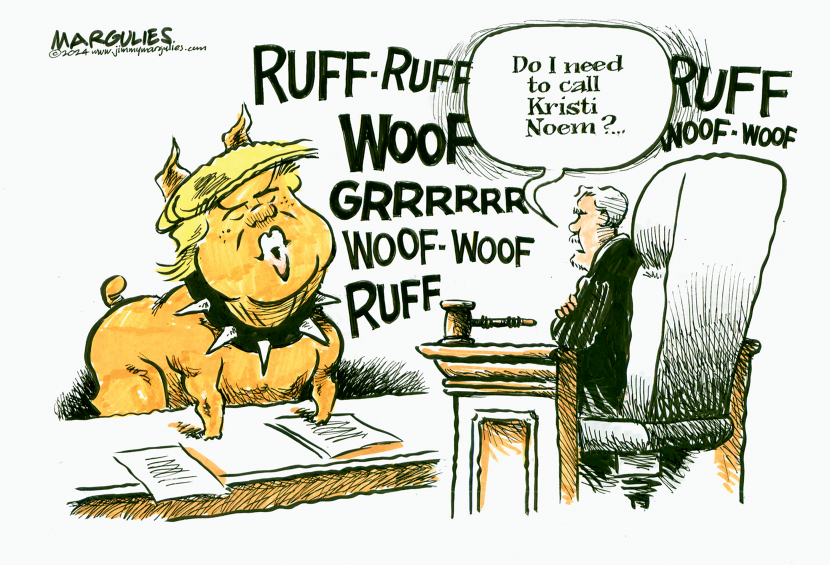 MARGULIES.
©2024 www.jimmymargulies.com
RUFF-RUFF
WOOF
GRRRRRR
WOOF-WOOF
RUFF
Do I need
to call
Kristi
Noem?...
RUFF
WOOF-WOOF